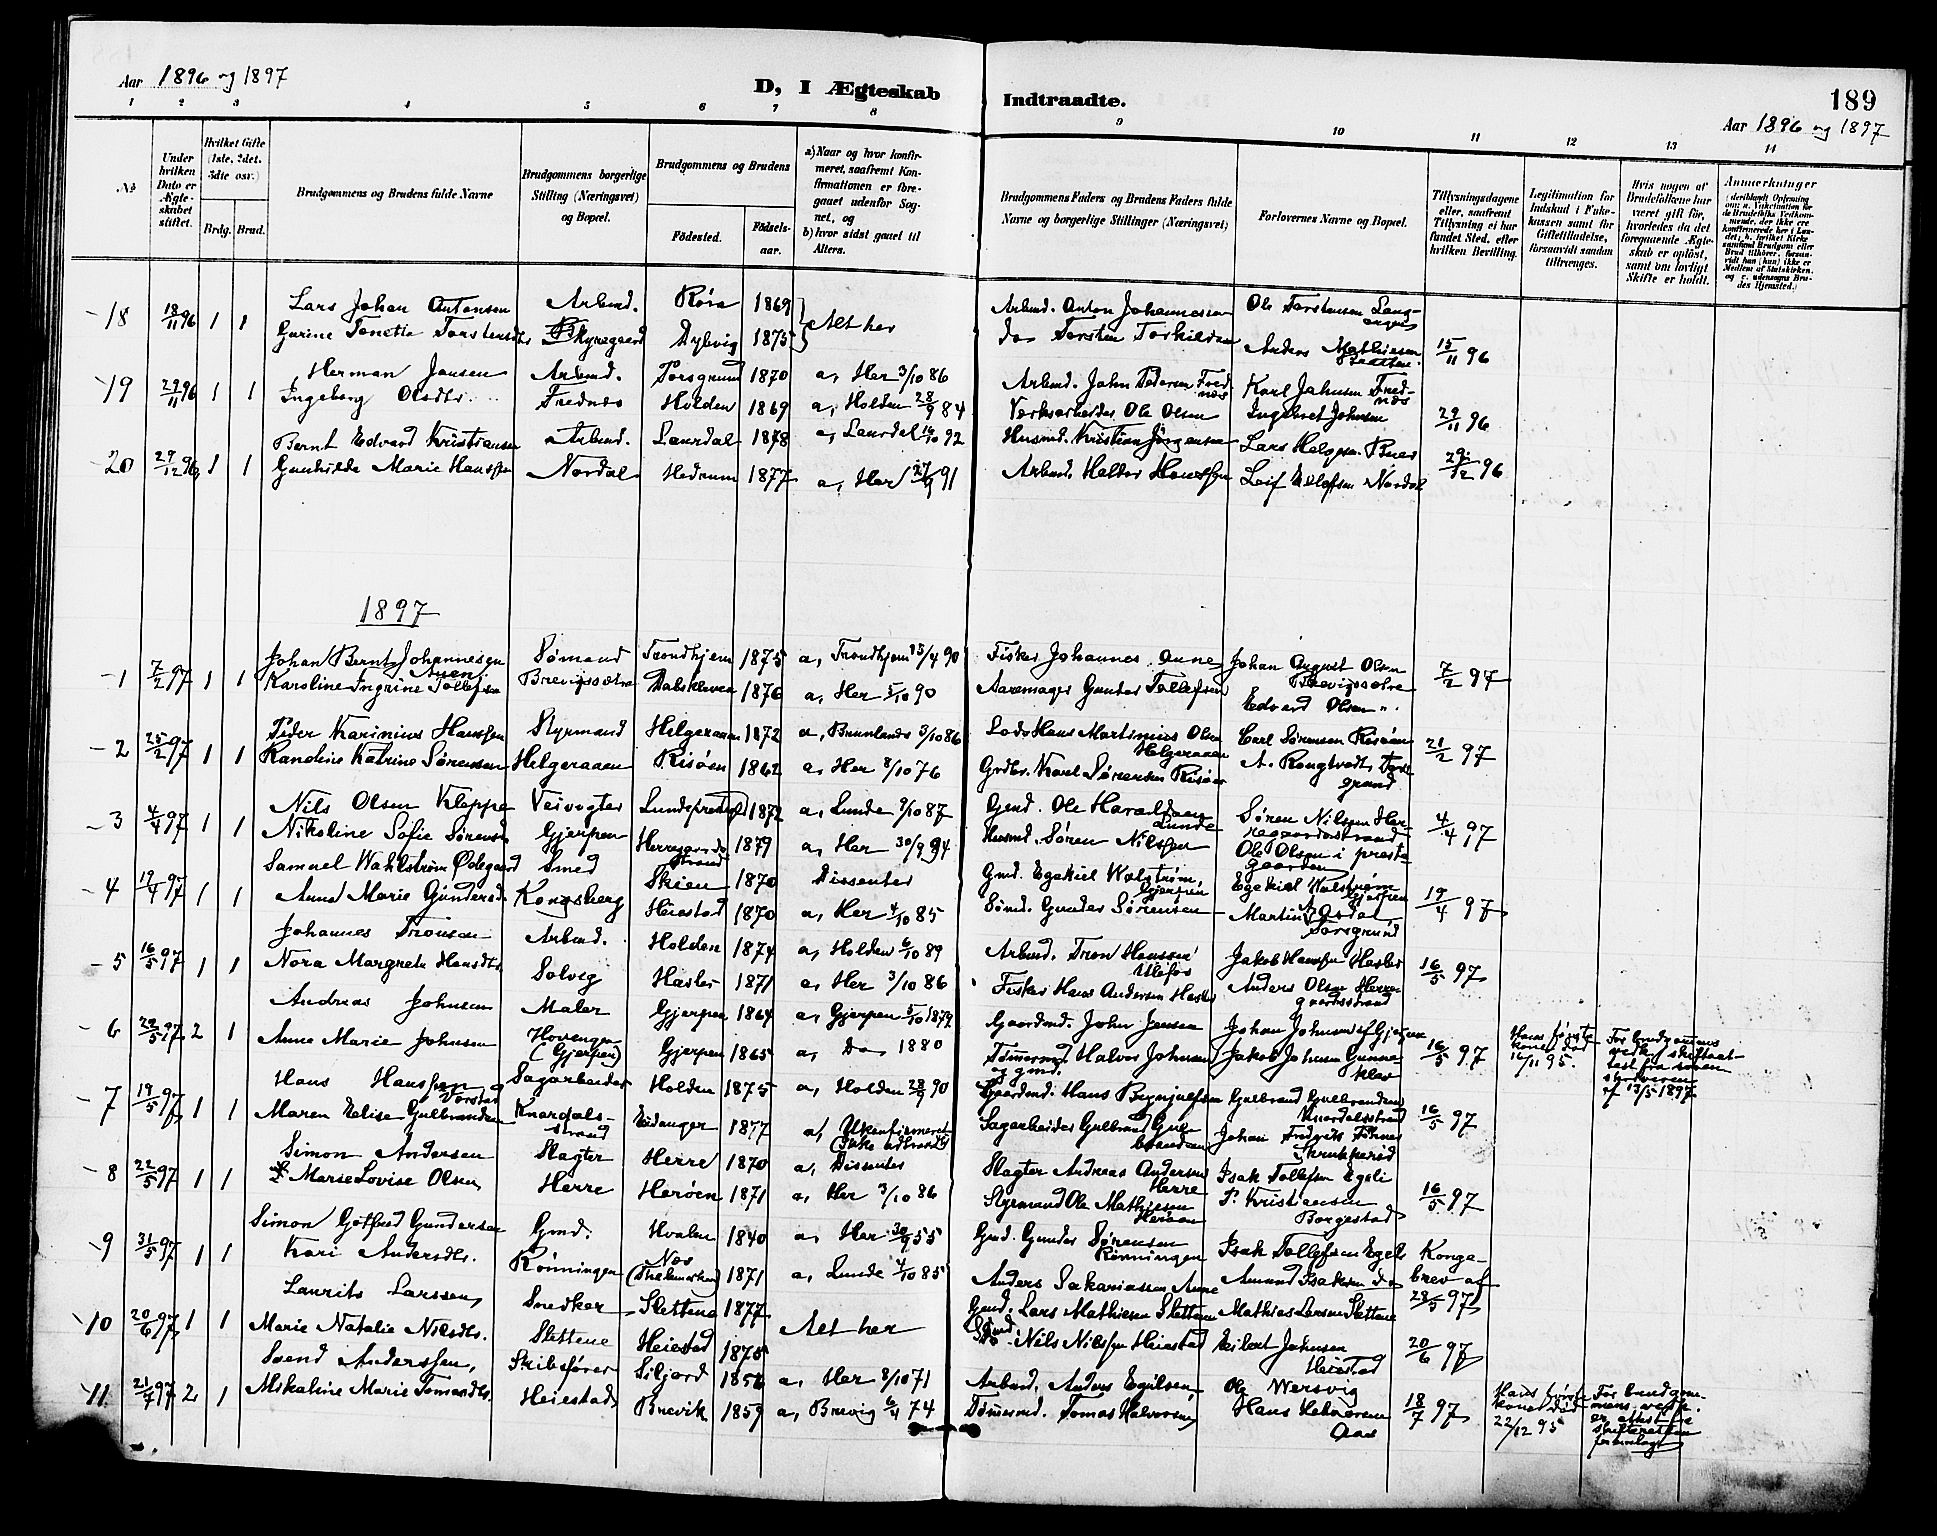 Aar 1896 og 1897
D, I Ægteskab Indtraadte.
189
Aar 1896 og 1897
1 2 3 4 5 6 7 8 9 10 11 12 13 14
No
Under hvilken Dato er Ægteskabet stiftet.
Hvilket Gifte (1ste, 2det, 3die osv.)
Brdg. Brud.
Brudgommens og Brudens fulde Navne
Brudgommens borgerlige Stilling (Næringsvei) og Bopæl.
Brudgommens og Brudens
Fødested. Fødselsaar.
a) Naar og hvor konfirmeret, saafremt Konfirmationen er foregaaet udenfor Sognet, og
b) hvor sidst gaaet til Alters.
Brudgommens Faders og Brudens Faders fulde Navne og borgerlige Stillinger (Næringsvei)
Forlovernes Navne og Bopæl.
Tillysningsdagene eller, saafremt Tillysning ei har fundet Sted, efter hvilken Bevilling.
Legitimation for Indskud i Enkekassen samt for Giftetilladelse, forsaavidt saadan tiltrænges.
Hvis nogen af Brudefolkene har været gift før, hvorledes da det foregaaende Ægteskab er opløst, samt om lovligt Skifte er holdt.
Anmerkninger
18 18/11 96 1 1 Lars Johan Antonsen Arbmd. Røra 1869 Arbmd. Anton Johannesen Ole Torstensen
Garine Tonette Torstensdtr 1875 Alt her Do Torsten Torkildsen Anders Mathiesen 15/11 96
19 29/11 96 1 1 Herman Jansen Arbmd. Porsgrund 1870 a, Her 3/10 86 Arbmd. John Pedersen Frednæs Karl Jahnsen Frednæs
Ingeborg Olsdtr. Frednæs Holden 1869 a, Holden 28/9 84 Værksarbeider Ole Olsen Ingebret Johnsen 29/11 96
20 29/12 96 1 1 Bernt Edvard Kristiansen Arbmd. Laurdal 1878 a, Laurdal 16/10 92 Husmd. Kristian Jørgensen Lars Helgesen
Gunhilde Marie Hanssen Nordal Hedrum 1877 a, Her 27/9 91 Arbmd. Halvor Hanssen Leif Nordal 29/12 96
1897
1 7/2 97 1 1 Johan Bernt Johannesen Aunei Sømand Trondhjem 1875 a, Trondhjem 15/4 90 Fisker Johannes Aune Johan August Olsen Brevigssætre 7/2 97
Karoline Ingrine Tollefsen Brevigssætre Dalskleven 1876 a, Her 5/10 90 Aaremager Gunder Tollefsen Edvard Olsen "
2 25/2 97 1 1 Peder Karinius Hanssen Styrmand Helgeraaen 1872 a, Brunlanes 3/10 86 Lods Hans Martinius Olsen Helgeraaen Carl Sørensen Risøen 21/2 97
Randine Katrine Sørensen Helgeraaen Risøen 1862 a, Her 8/10 76 Grdbr. Karl Sørensen Risøen A. Rongtvedt, Porsgrund
3 4/4 97 1 1 Nils Olsen Kleppe Veivogter 1872 a, Lunde 9/10 87 Gmd. Ole Haraldsen Lunde Søren Nilsen Herregaardsstrand 4/4 97
Nikoline Sofie Sørensd. Gjerpen Herregaardsstrand 1879 a, Her 30/9 94 Husmd. Søren Nilssen Ole Olsen i prestegaarden
4 19/4 97 1 1 Samuel Wahlstrøm Ødegaard Smed Skien 1870 Dissenter Gmd. Ezekiel Walstrøm Gjerpen Ezekiel Walstrøm Gjerpen 19/4 97
Anne Marie Gundersd. Kongsberg Heiestad 1870 a, Her 4/10 85 Sømd. Gunder Sørensen Martin Aasdal, Porsgrund
5 16/5 97 1 1 Johannes Tronsen Arbmd. Holden 1874 a, Holden 6/10 89 Arbmd. Tron Hanssen Ulefos Jakob Hanssen Hasler 16/5 97
Nora Margrete Hansdtr. Solvig Hasler 1871 a, Her 3/10 86 Fisker Hans Andersen Hasler Anders Olsen Herregaardsstrand
6 29/5 97 2 1 Andreas Johnsen Maler Gjerpen 1864 a, Gjerpen 5/10 1879 Gaardmd. John Jensen Johan Johnsen Gjerpen 16/5 97 Hans første kone død 16/11 95. For brudgommens vedk. skifteattest fra sorenskriveren af 13/5 1897
Anne Marie Johnsen Hovenga (Gjerpen) Gjerpen 1865 a, Do 1880 Tømermd. og gmd. Halvor Johnsen Jakob Johnsen Gunneklev
7 19/5 97 1 1 Hans Hanssen Vorstad Sagarbeider Holden 1875 a, Holden 28/9 90 Gaardmd. Hans Brynjulfsen Gulbrand Gulbrandsen Knardalsstrand 16/5 97
Maren Elise Gulbrandsen Knardalsstrand Eidanger 1877 a, Ukonfirmeret Sagarbeider Gulbrand Gulbrandsen Johan Fredrik
8 22/5 97 1 1 Simon Andersen Slagter Herre 1870 a, Dissenter Slagter Andreas Andersen Herre Isak Tollefsen Egeli 16/5 97
Marie Lovise Olsen Herre Herøen 1871 a, Her 3/10 86 Styrmand Ole Mathisen Herøen P. Kristiansen Borgestad
9 31/5 97 1 1 Simon Gotfred Gundersen Gmd. Hvalen 1840 a, Her 30/9 55 Gmd. Gunder Sørensen Rønningen Isak Tollefsen Egeli Kongebrev af 28/5 97
Kari Andersdtr. Rønningen Næs (Thelemarken) 1871 a, Lunde 4/10 85 Anders Sakariassen Aune Amund Isaksen do
10 20/6 97 1 1 Laurits Larssen Snedker Slettene 1877 Alt her Gmd. Lars Mathiesen Slettene Mathias Larsen Slettene 20/6 97
Marie Natalie Nilsdtr. Slettene Heiestad 1875 Nils Nilssen Heiestad Eilert Johnsen Heiestad
11 21/7 97 2 1 Svend Anderssen, Skibsfører Siljord 1856 a, Her 8/10 71 Arbmd. Anders Egilsen Ole Wersvig 18/7 97 Hans første kone død 22/12 95 For brudgommens vedk. er attest fra skifteretten foreviagt
Mikaline Marie Tomasdtr. Heiestad Brevik 1859 a, Brevig 6/4 74 Tømermd. Tomas Halvorsen Hans Halvorsen Aas